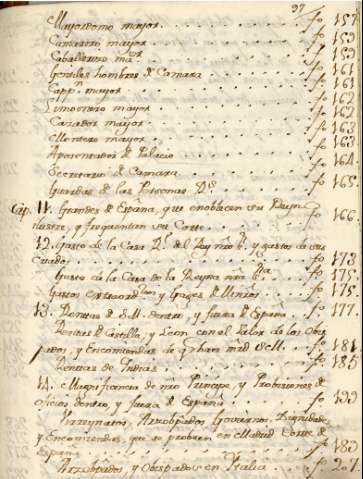 97
Mayordomo mayor . . . . fo 157
Camarero mayor . . . . fo 159
Caballerizo mayor . . . . fo 159
Gentiles hombres d Camara . . . . fo 161
Capp.n mayor . . . . fo 161
Limosnero mayor . . . . fo 162
Cazador mayor . . . . fo 163
Montero mayor . . . . fo 163
Aposentador d Palacio . . . . fo 164
Secretario d Camara . . . . fo
Guardas de las Personas R.s . . . . fo 165
Cap. 11. Grandes de España, que enoblecen su Reyn
y frequentan su Corte . . . . fo 166
12. Gasto de la Casa R.l del Rey nro S.r, y gastos de sus
. . . . fo 173
Gasto de la Casa de la Reyna nra S.ra . . fo 175
Gastos extraord. y Gages d Minros . . fo 175
13. Rentas d S.M. dentro, y fuera d España . . fo 177
Rentas d Castilla, y Leon con el Valor de los Obis
pados, y Encomiendas de q han mrd d S.M. . . fo 181
Rentas de Indias . . . . fo 185
14. Magnificencia de nro Principe, y Probisiones d
oficios dentro, y fuera d España . . . . fo 199
Virreynatos, Arzobpados, Goviernos, Dignidades
y Encomiendas, que se probeen en Madrid Corte d
España . . . . fo
Arzobpados, y Obispados en Italia . . fo 201